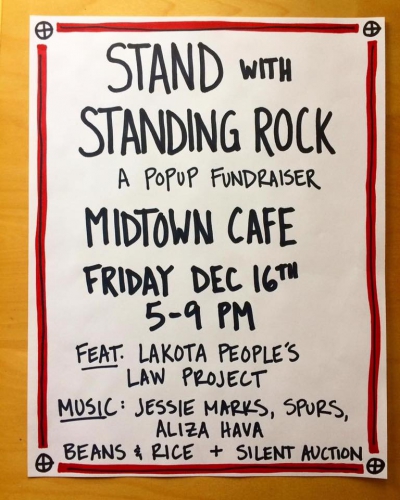 STAND WITH
STANDING ROCK
A POPUP FUNDRAISER
MIDTOWN CAFE
FRIDAY DEC 16TH
5-9 PM
FEAT. LAKOTA PEOPLE'S
LAW PROJECT
MUSIC: JESSIE MARKS, SPURS,
ALIZA HAVA
BEANS & RICE + SILENT AUCTION